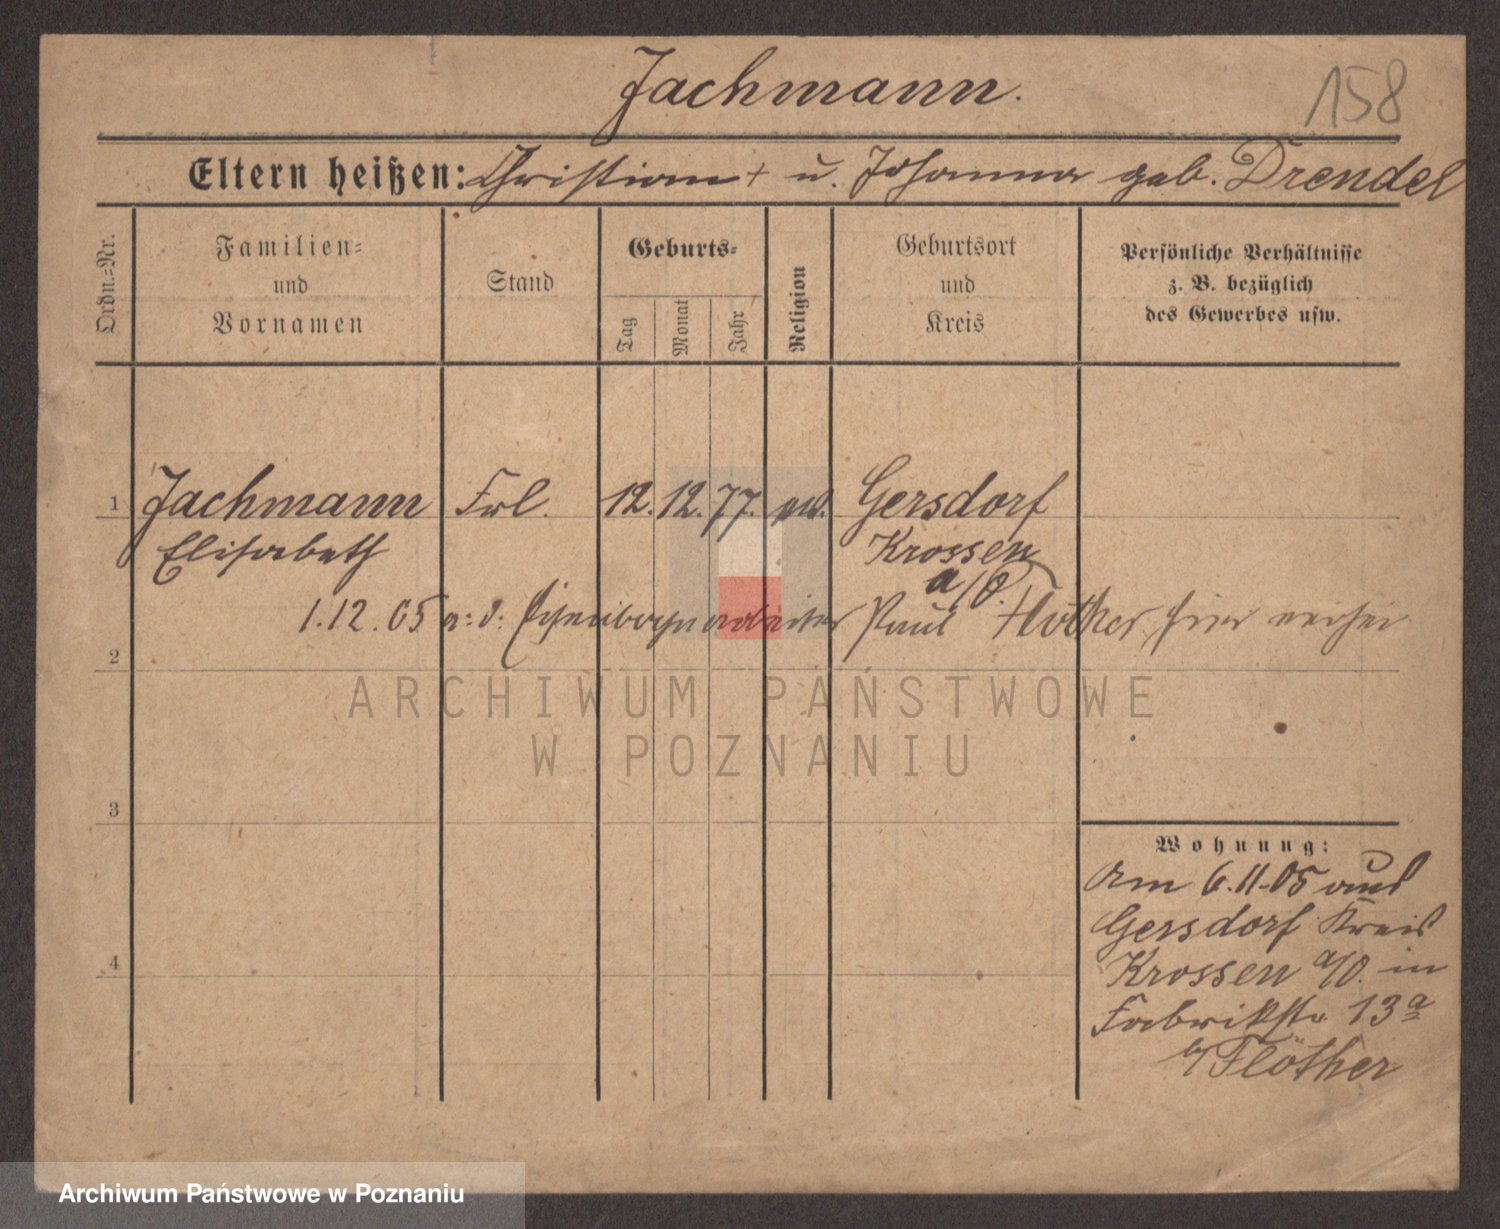 Jachmann.
158
Eltern heißen: Christian + u. Johanna geb. Drendel
Ordn.=Nr.
Familien= und Vornamen
Stand
Geburts=
Tag
Monat
Jahr
Religion
Geburtsort und Kreis
Persönliche Verhältnisse
z. B. bezüglich
des Gewerbes usw.
1 Jachmann Frl. 12. 12. 77. ev. Gersdorf
Elisabeth Krossen
a/O.
1.12.05 a: d: Eisenbahnarbeiter Paul Flöther, hier verh
2
ARCHIWUM PAŃSTWOWE
W POZNANIU
3
Wohnung:
Am 6.11.05 aus
Gersdorf Kreis
Krossen a/O. in
Fabrikstr. 13a
b/ Flöther
4
Archiwum Państwowe w Poznaniu